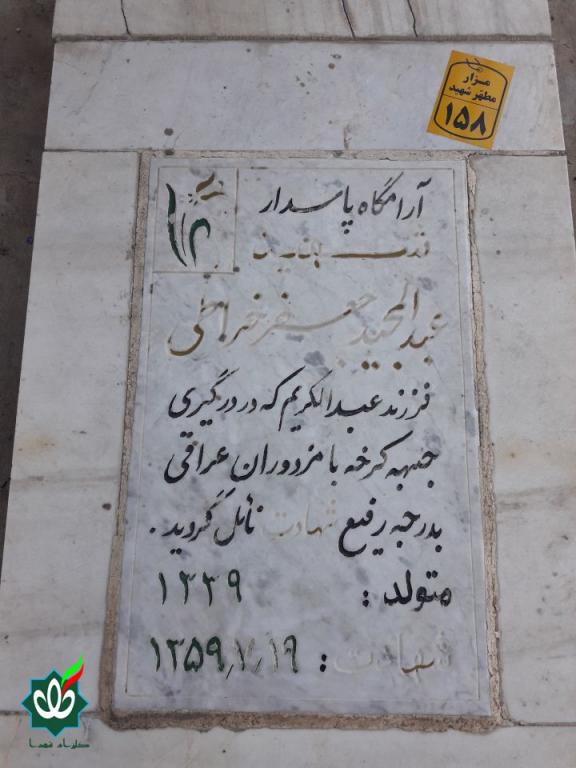 مزار
مطهر شهید
۱۵۸
آرامگاه پاسدار
شهید
عبدالمجید جعفر خراطی
فرزند عبدالکریم که در درگیری
جبهه کرخه با مزدوران عراقی
بدرجه رفیع شهادت نائل گردید.
متولد: ۱۳۳۹
شهادت: ۱۳۵۹٫۷٫۱۹
گلزار شهدا